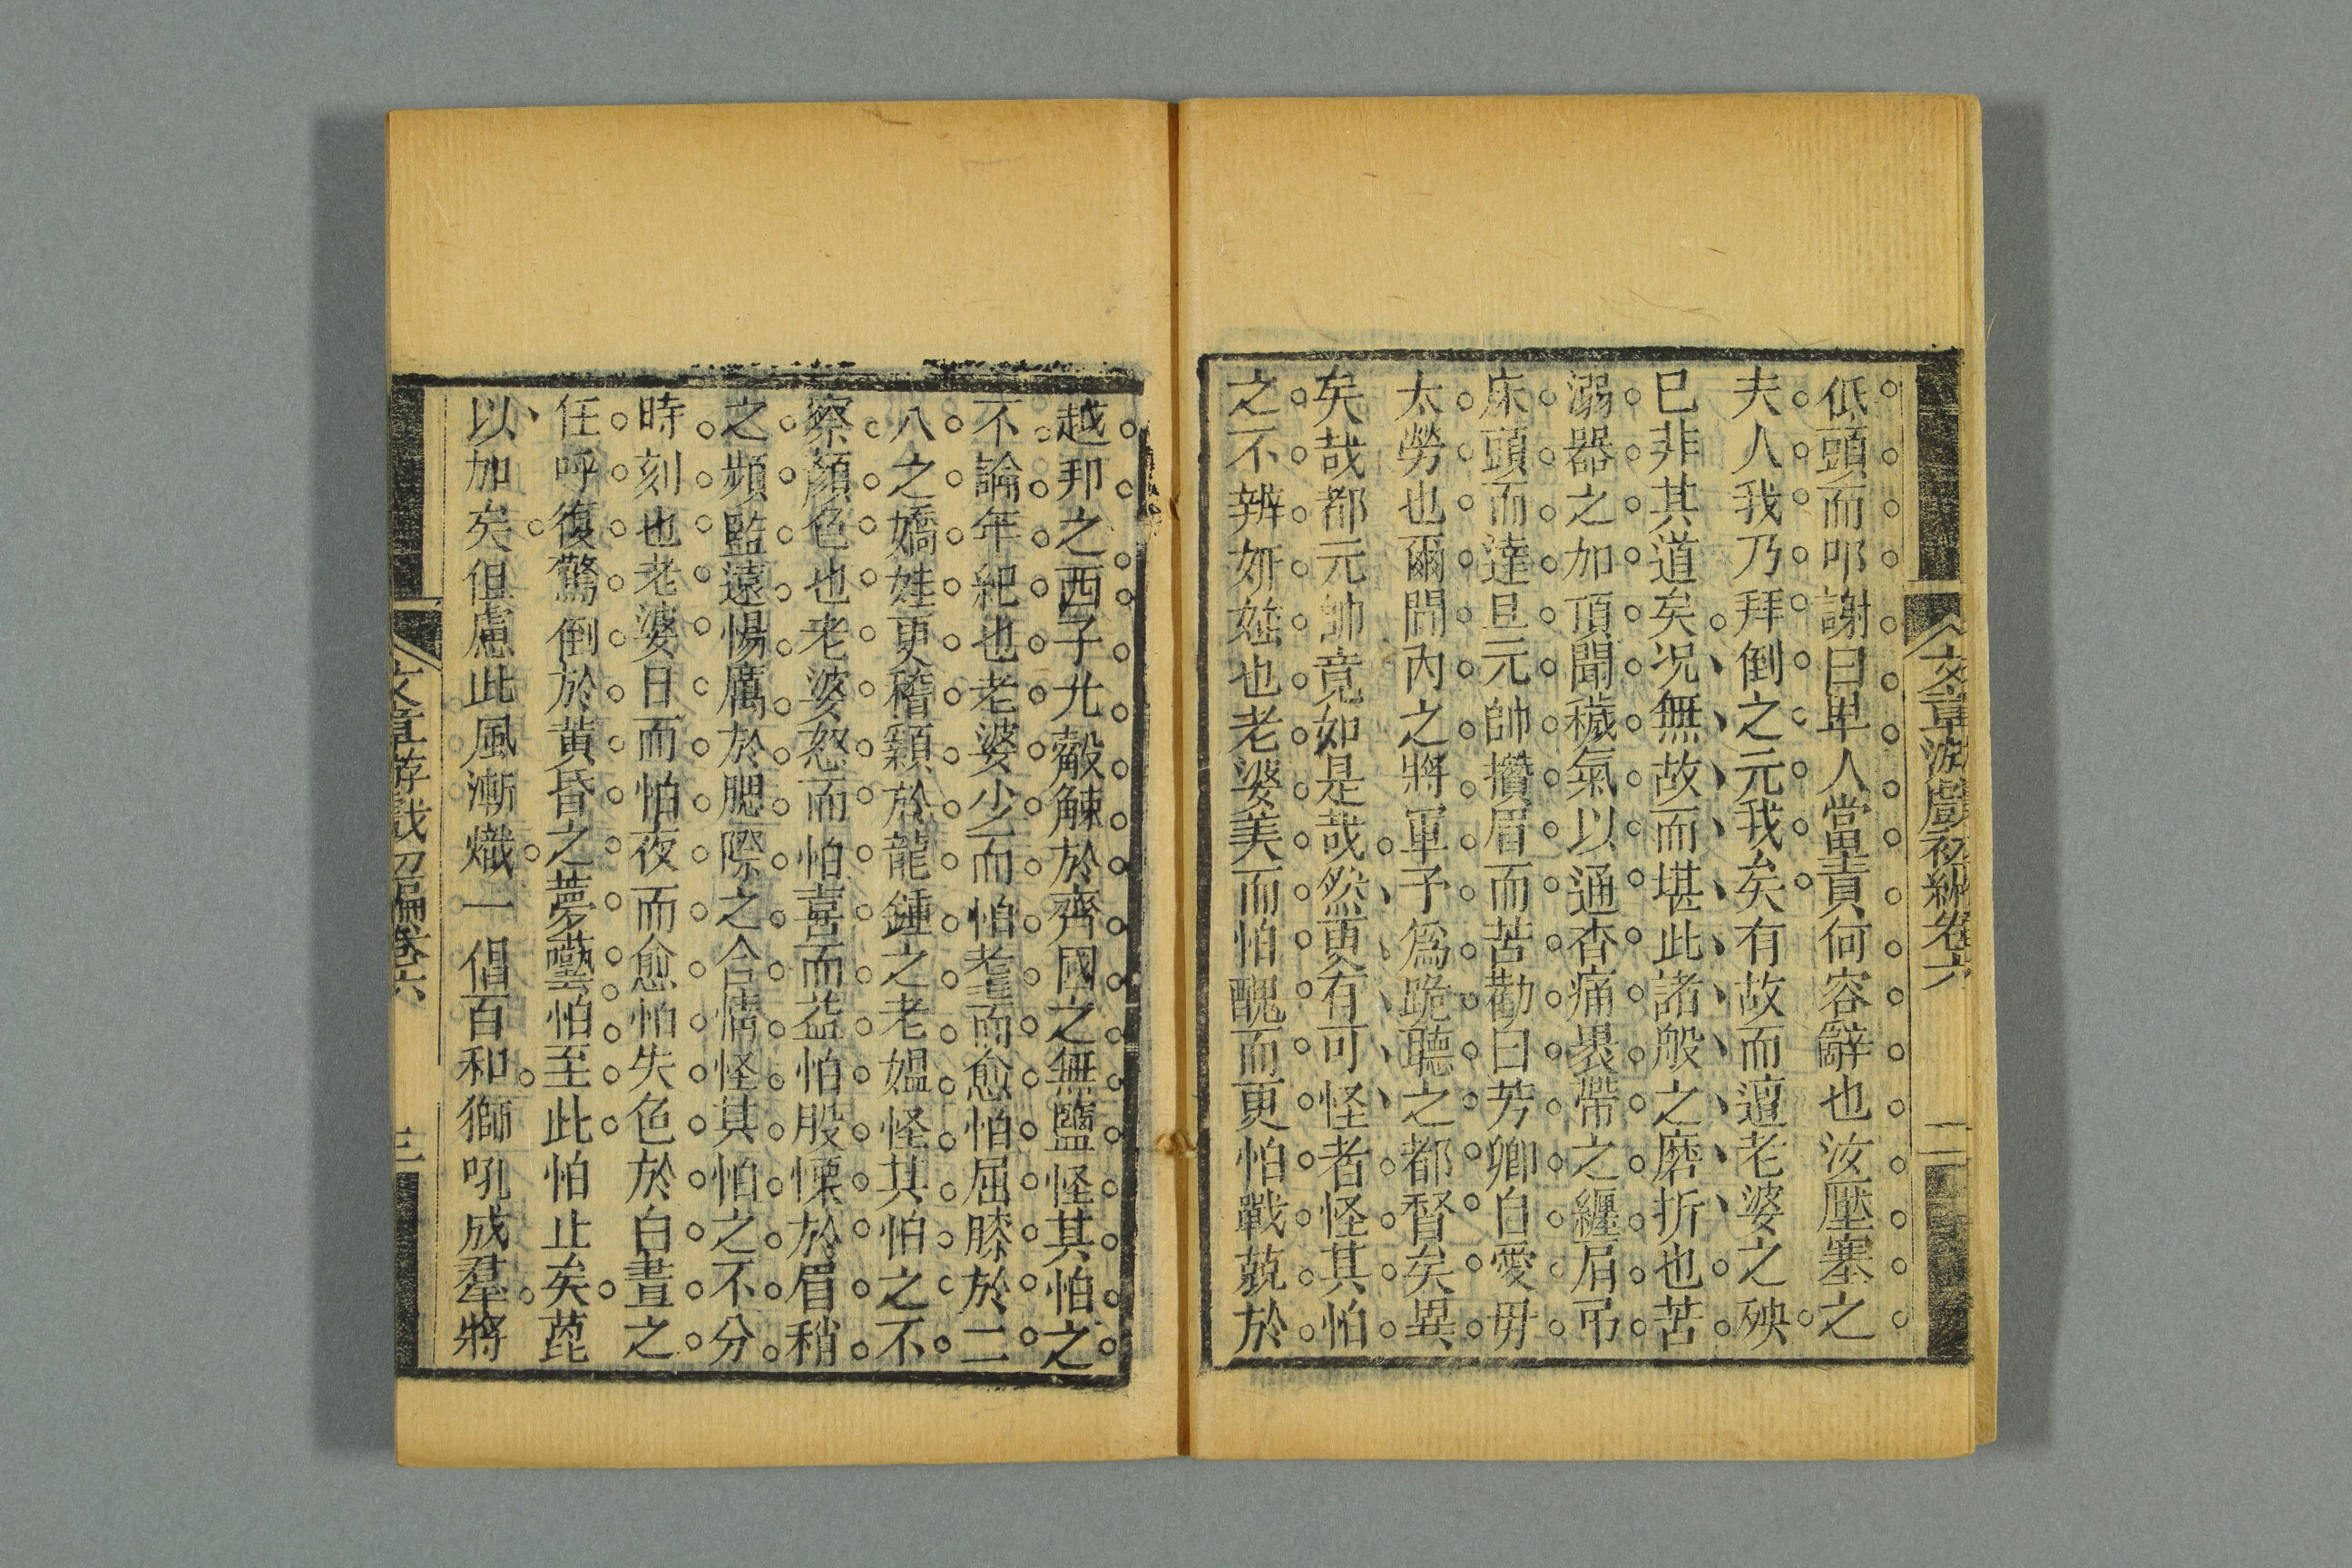 文章游戲初編卷六
二
低頭而叩謝曰卑人當責何容辭也汝壓塞之
夫人我乃拜倒之元我矣有故而邅老婆之殃
已非其道矣况無故而堪此諸般之磨折也苦
溺器之加頂聞穢氣以通杳痛裹帶之纏肩吊
床頭而達旦元帥攢眉而苦勸曰芳卿自愛毋
太勞也爾閫內之將軍予爲跪聽之都督矣異
矣哉都元帥竟如是哉然更有可怪者怪其怕
之不辨妍媸也老婆美而怕醜而更怕戰兢於
越邦之西子尤觳觫於齊國之無鹽怪其怕之
不論年紀也老婆少而怕耄而愈怕屈膝於二
八之嬌娃更稽顙於龍鍾之老媼怪其怕之不
察顏色也老婆怒而怕喜而益怕股慄於眉稍
之頻監遠惕厲於腮際之含情怪其怕之不分
時刻也老婆日而怕夜而愈怕失色於白晝之
任呼復驚倒於黃昏之夢囈怕至此怕止矣蔑
以加矣但慮此風漸熾一倡百和獅吼成羣將
文章游戲初編卷六
三